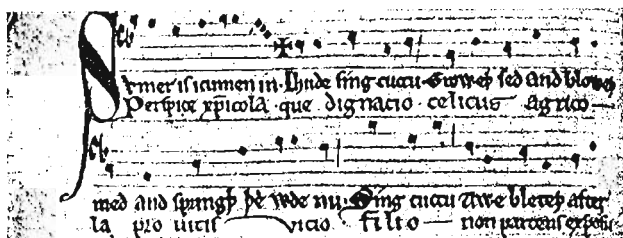 Svmer is icumen in. Lhude sing cuccu. Groweþ sed and bloweþ
Perspice xpicola que dignacio celicus agrico
med and springþ þe wde nu. Sing cuccu Awe bleteþ after
la pro uitis vicio filio non parcens exposu